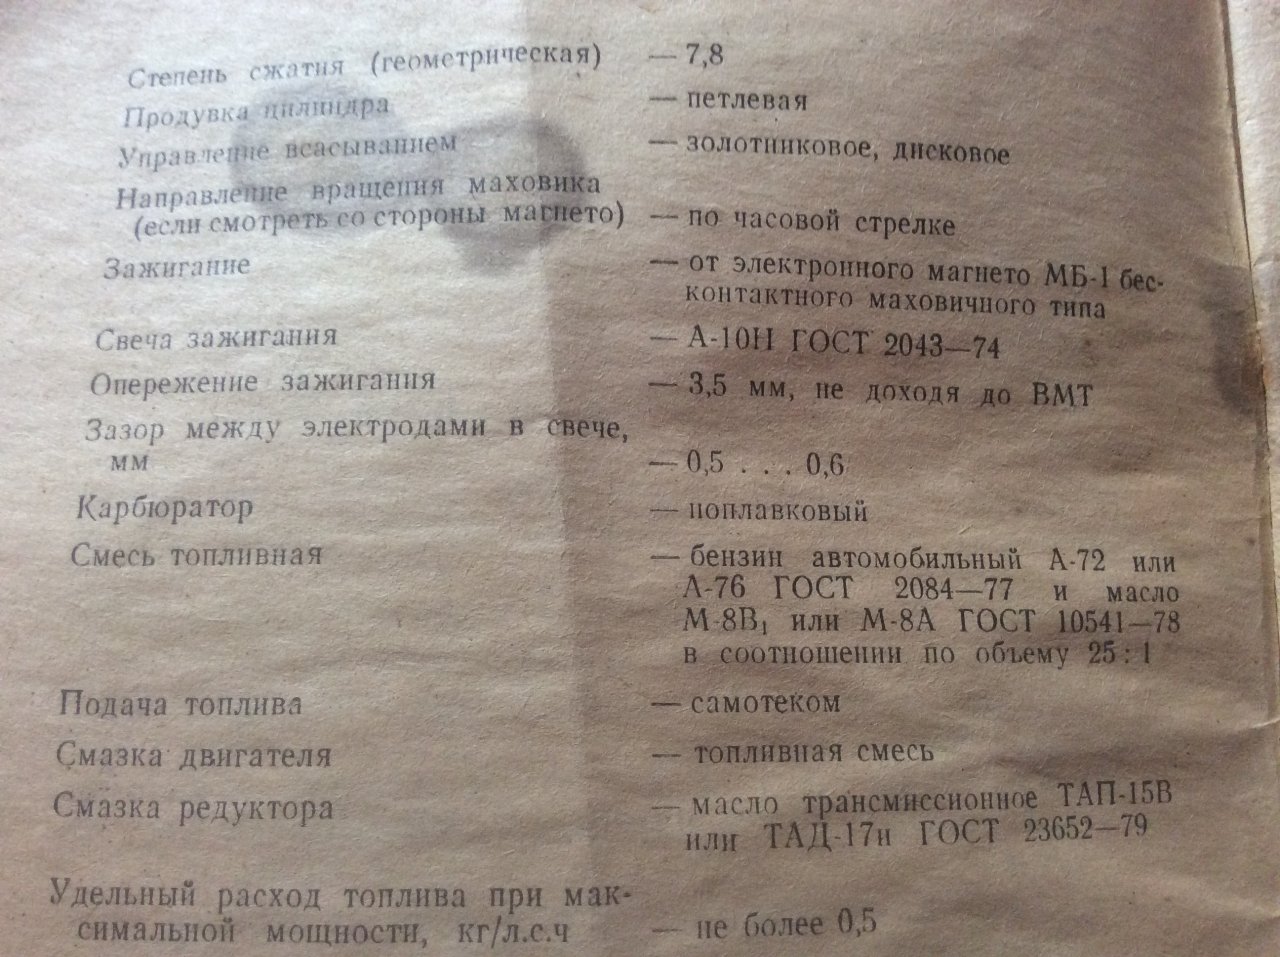 Степень сжатия (геометрическая) — 7,8
Продувка цилиндра — петлевая
Управление всасыванием — золотниковое, дисковое
Направление вращения маховика
(если смотреть со стороны магнето) — по часовой стрелке
Зажигание — от электронного магнето МБ-1 бес-
контактного маховичного типа
Свеча зажигания — А-10Н ГОСТ 2043—74
Опережение зажигания — 3,5 мм, не доходя до ВМТ
Зазор между электродами в свече,
мм — 0,5 . . . 0,6
Карбюратор — поплавковый
Смесь топливная — бензин автомобильный А-72 или
А-76 ГОСТ 2084—77 и масло
М-8В₁ или М-8А ГОСТ 10541—78
в соотношении по объему 25 : 1
Подача топлива — самотеком
Смазка двигателя — топливная смесь
Смазка редуктора — масло трансмиссионное ТАП-15В
или ТАД-17и ГОСТ 23652—79
Удельный расход топлива при мак-
симальной мощности, кг/л.с.ч — не более 0,5